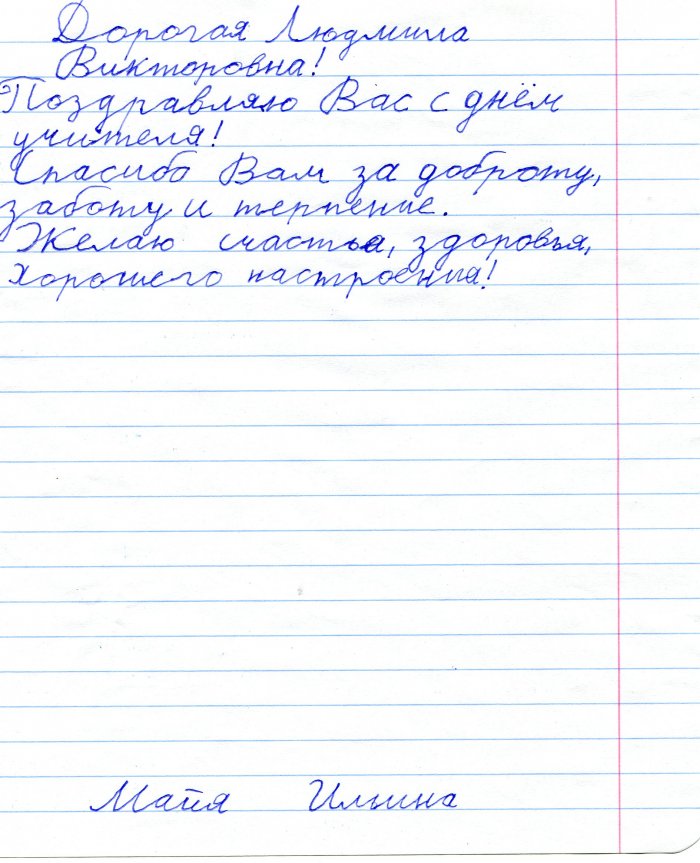 Дорогая Людмила
Викторовна!
Поздравляю Вас с днём
учителя!
Спасибо Вам за доброту,
заботу и терпение.
Желаю счастья, здоровья,
хорошего настроения!
Майя Ильина